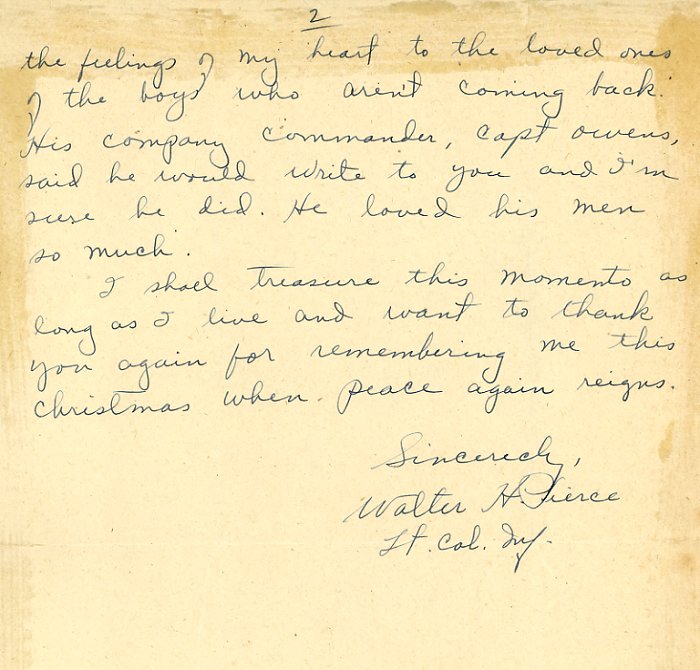 2
the feelings of my heart to the loved ones
of the boys who aren't coming back.
His company commander, Capt Owens,
said he would write to you and I'm
sure he did. He loved his men
so much.
I shall treasure this momento as
long as I live and want to thank
you again for remembering me this
Christmas when peace again reigns.
Sincerely,
Walter H. Pierce
Lt. Col. Inf.